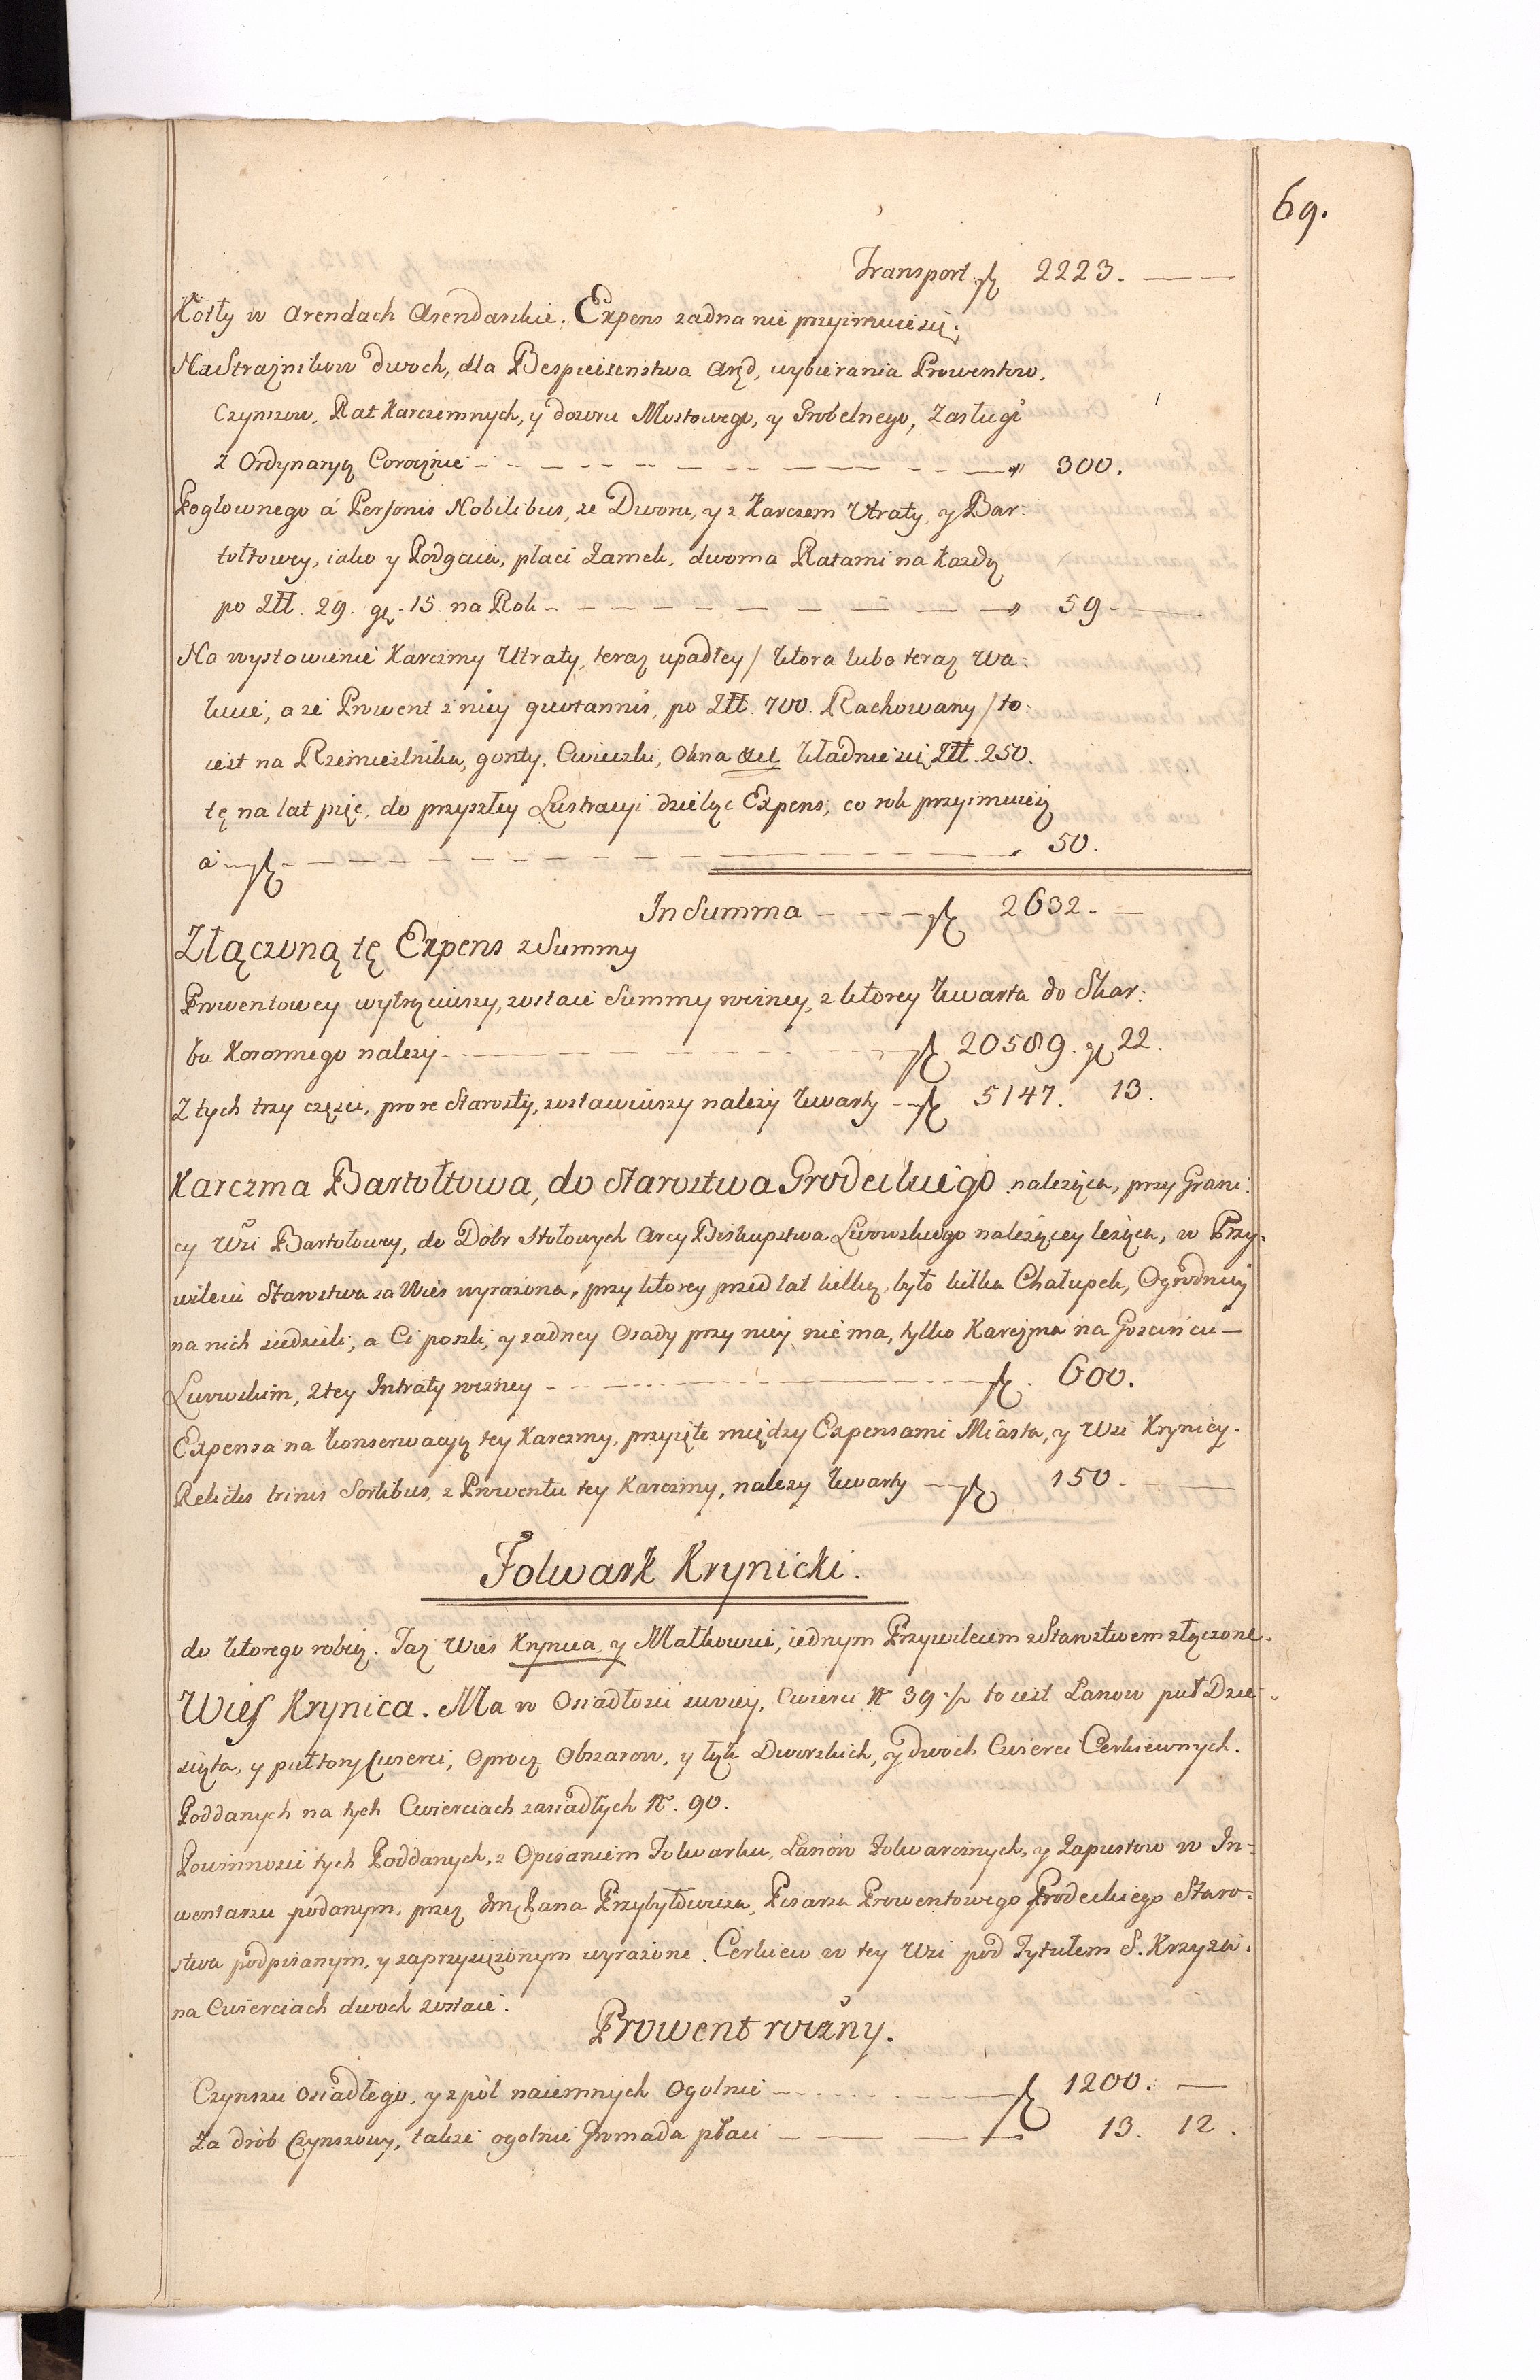 69.
Transport fl 2223. —
Kotły w Arendach Arendarskie. Expens zadna nie przyimuie się.
Na Straznikow dwoch, dla Bespieczenstwa Aręd, wybierania Prowentow,
Czynszow, Rat Karczemnych, y dozoru Mostowego, y Grobelnego, Zasługi
z Ordynaryą Corocznie — 300.
Pogłownego á Personis Nobilibus, ze Dworu, y z Karczem Utraty, y Bar:
tołtowey, iako y Podgaia, płaci Zamek, dwoma Ratami na Kazdą
po Złł. 29. gr. 15. na Rok — 59 —
Na wystawienie Karczmy Utraty, teraz upadłey / ktora lubo teraz wa:
kuie, a ze Prowent z niey quotannis, po Złł. 700. Rachowany / to:
iest na Rzemieslnika, gonty, Cwieczki, Okna &c kładnie się Złł. 250.
tę na lat pięć, do przyszłey Lustracyi dzieląc Expens, co rok przyimuie się
á fl — 50.
In Summa — fl 2632. —
Złączoną tę Expens z Summy
Prowentowey wytrąciwszy, zostaie Summy roczney, z ktorey kwarta do Skar:
bu Koronnego nalezy — fl 20589. gr 22.
Z tych trzy częsci, pro re Starosty, zostawiwszy nalezy kwarty — fl 5147. 13.
Karczma Bartołtowa, do Starostwa Grodeckiego należąca, przy Grani:
cy Wsi Bartołtowy, do Dóbr Stołowych Arcy Biskupstwa Lwowskiego należącey leżąca, w Przy:
wileiu Starostwa za Wies wyrażona, przy ktorey przed lat kilką, było kilka Chałupek, Ogrodnicy
na nich siedzieli, a Ci poszli, y zadney Osady przy niey nie ma, tylko Karczma na Goscincu —
Lwowskim, z tey Intraty roczney — fl. 600.
Expensa na konserwacyą tey Karczmy, przyięte między Expensami Miasta, y Wsi Krynicy.
Relictis trinis Sortibus, z Prowentu tey Karczmy, nalezy kwarty — fl 150. —
Folwark Krynicki.
do ktorego robią. Taz Wies Krynica, y Małkowice, iednym Przywileiem z Starostwem złączone.
Wies Krynica. Ma w Osiadłosci swoiey, Cwierci No 39 ½ to iest Łanow puł Dzie:
siąta, y pułtory Cwierci, Oprocz Obszarow, y łąk Dworskich, y dwoch Cwierci Cerkiewnych.
Poddanych na tych Cwierciach zasiadłych No. 90.
Powinnosci tych Poddanych, z Opisaniem Folwarku, Łanów Folwarcznych, y Zapustow w In:
wentarzu podanym, przez Imć Pana Przybyłowicza, Pisarza Prowentowego Grodeckiego Staro:
stwa podpisanym, y zaprzysiężonym wyrażone. Cerkiew w tey Wsi pod Tytułem S. Krzyża.
na Cwierciach dwoch zostaie.
Prowent roczny.
Czynszu Osiadłego, y z pól naiemnych Ogolnie — fl 1200. —
Za drób Czynszowy, takze ogolnie Gromada płaci — 13. 12.